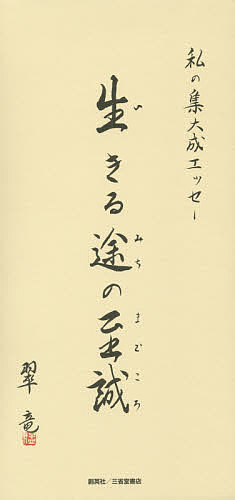 私の集大成エッセー
生きる途の至誠
い
みち
まごころ
翠竜
創英社/三省堂書店